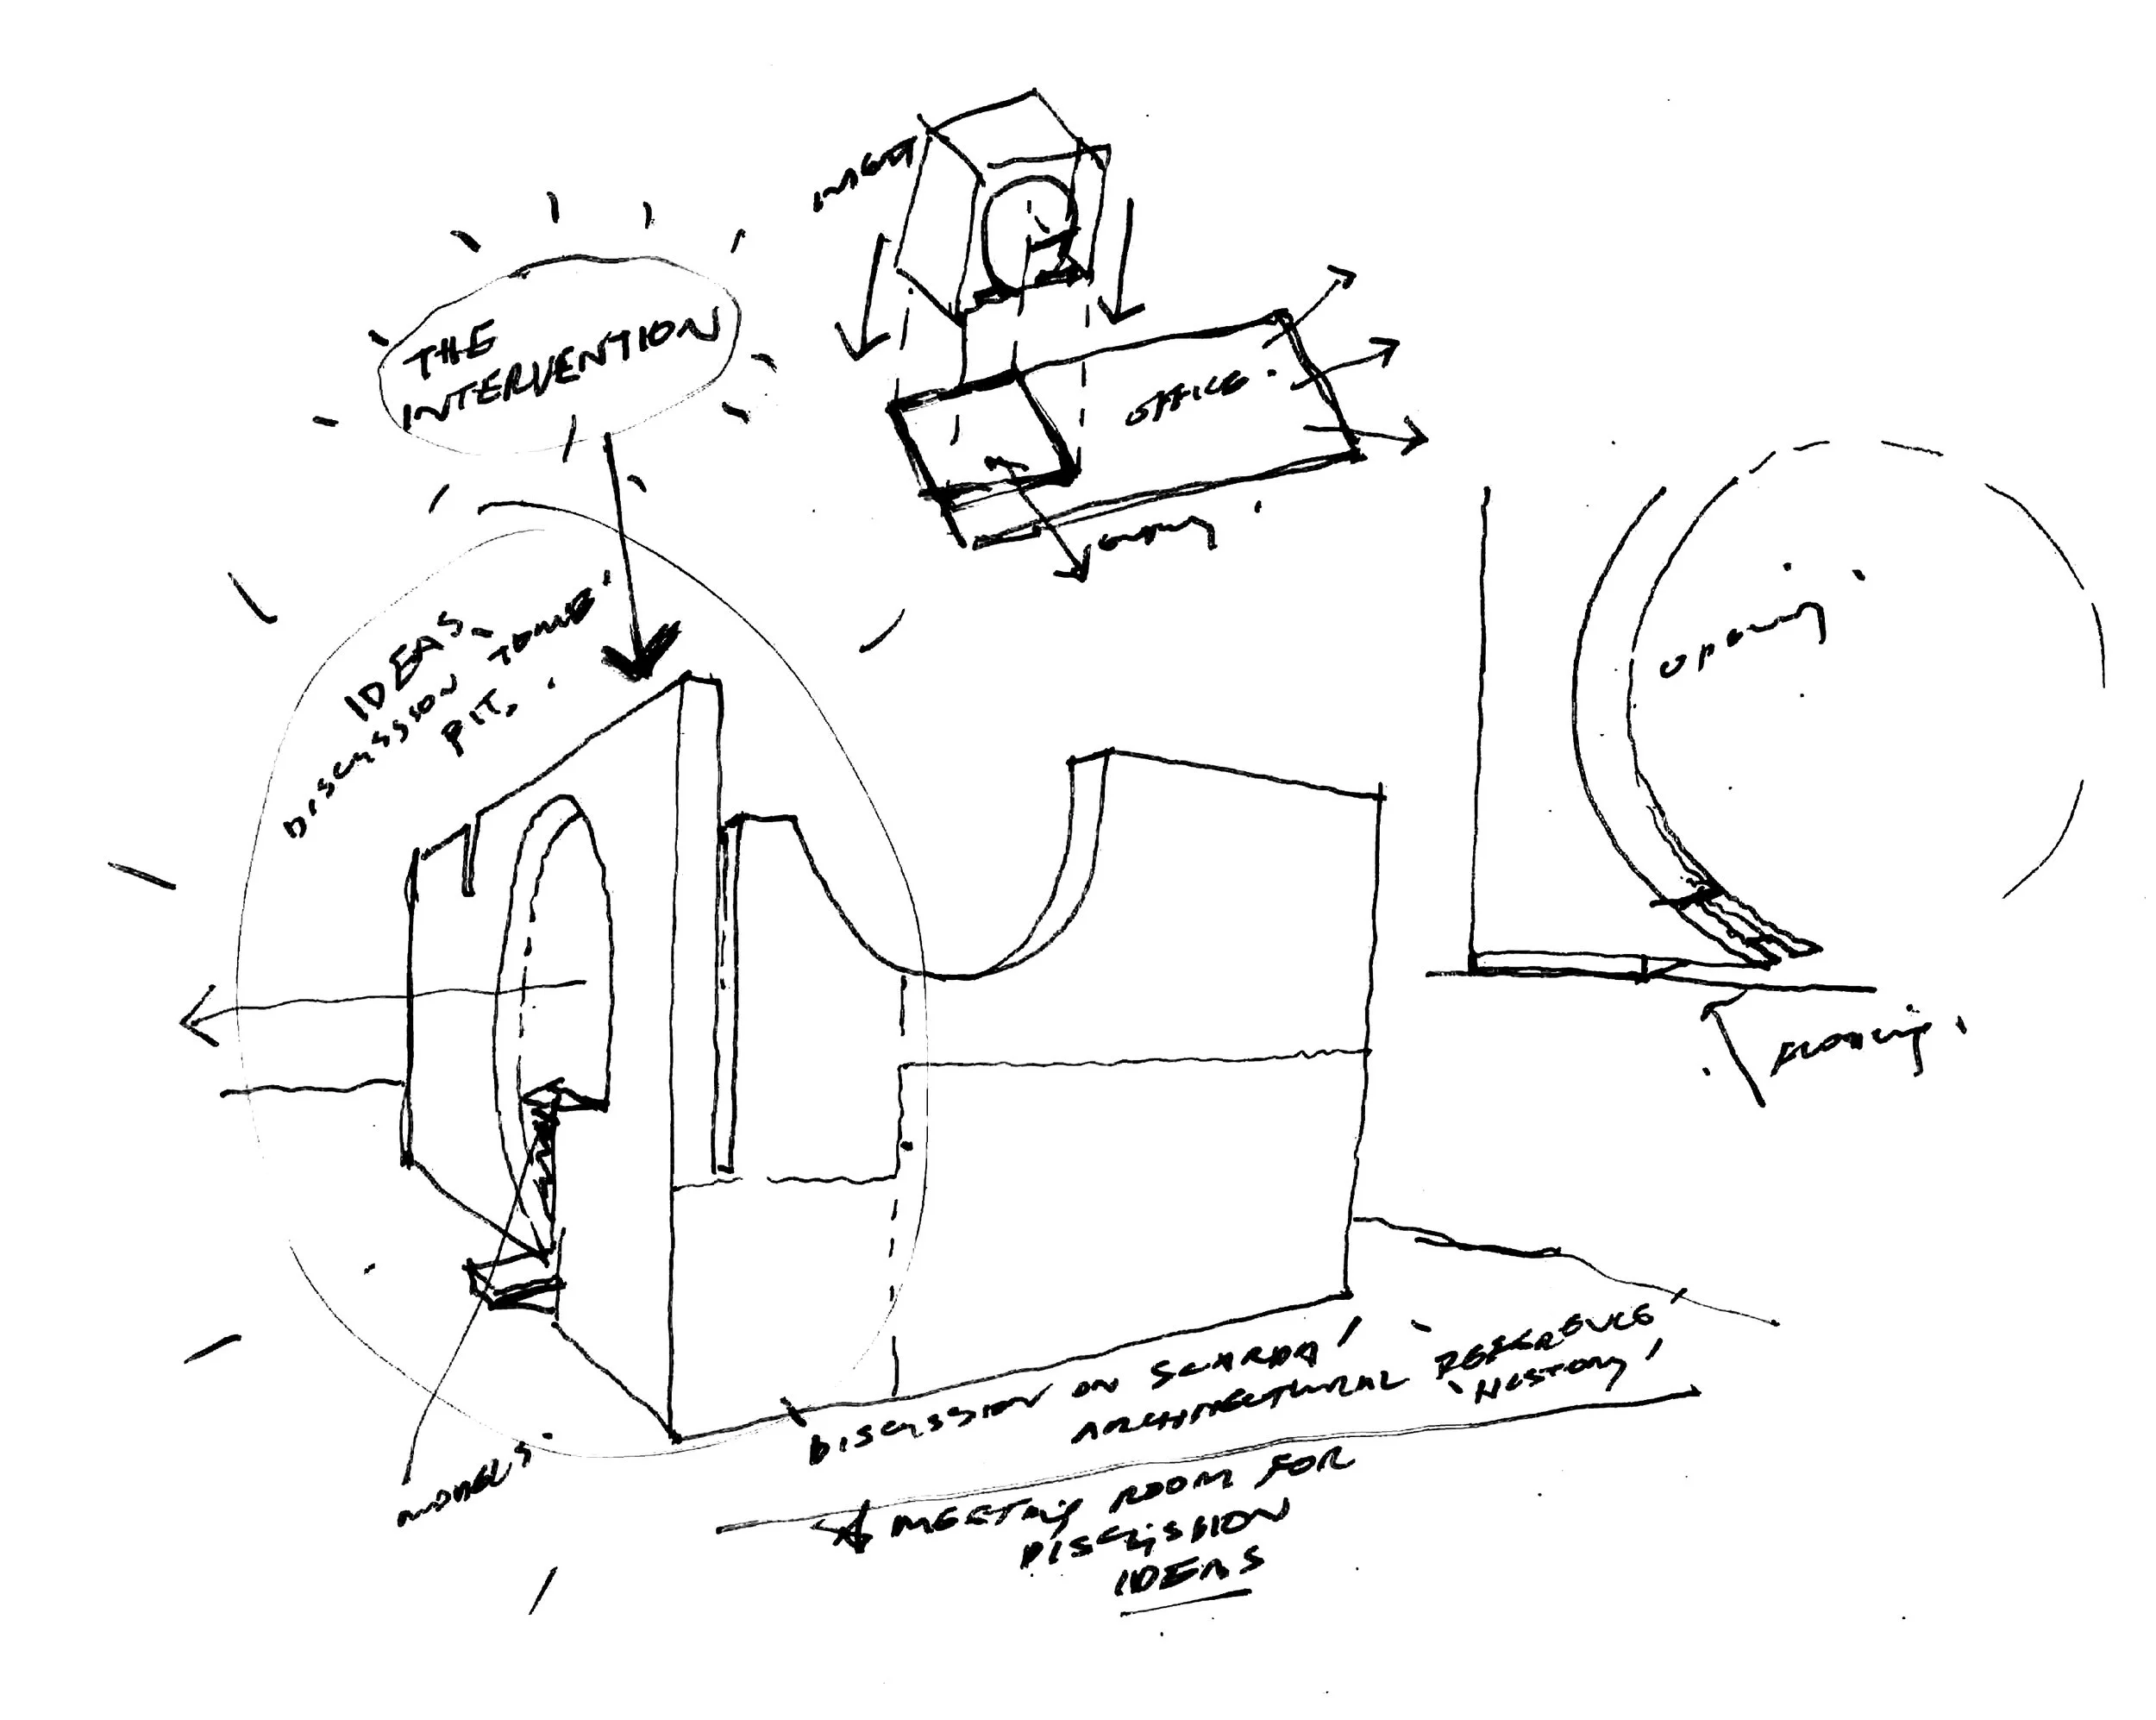 THE
INTERVENTION
OFFICE.
IDEAS -
DISCUSSION
PIT,
opening
MODELS.
DISCUSSION ON SCARPA'
ARCHITECTURAL REFERENCE'
'HISTORY'
MEETING ROOM FOR
DISCUSSION
IDEAS